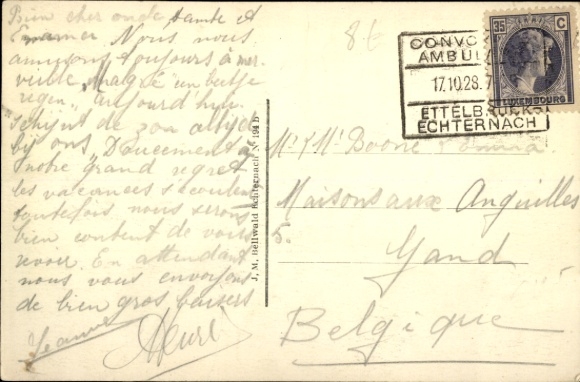 Bien cher oncle, tante et
Nous nous
amusons toujours à mer-
veille, Malgré "un beetje
regen" aujourd'hui
schijnt de zon altijd
bij ons. Doucement, à
notre grand regret
les vacances s'écoulent
toutefois nous serons
bien content de vous
revoir. En attendant
nous vous envoyons
de bien gros baisers
Jeanne
Henri
8 €
CONVOY
AMBUL
17.10.28.7
ETTELBRUCK
ECHTERNACH
35 C
LUXEMBOURG
J. M. Hellwald Echternach No 194 b
Mr & Me Boone &
Maison aux Anguilles
5.
Gand
Belgique